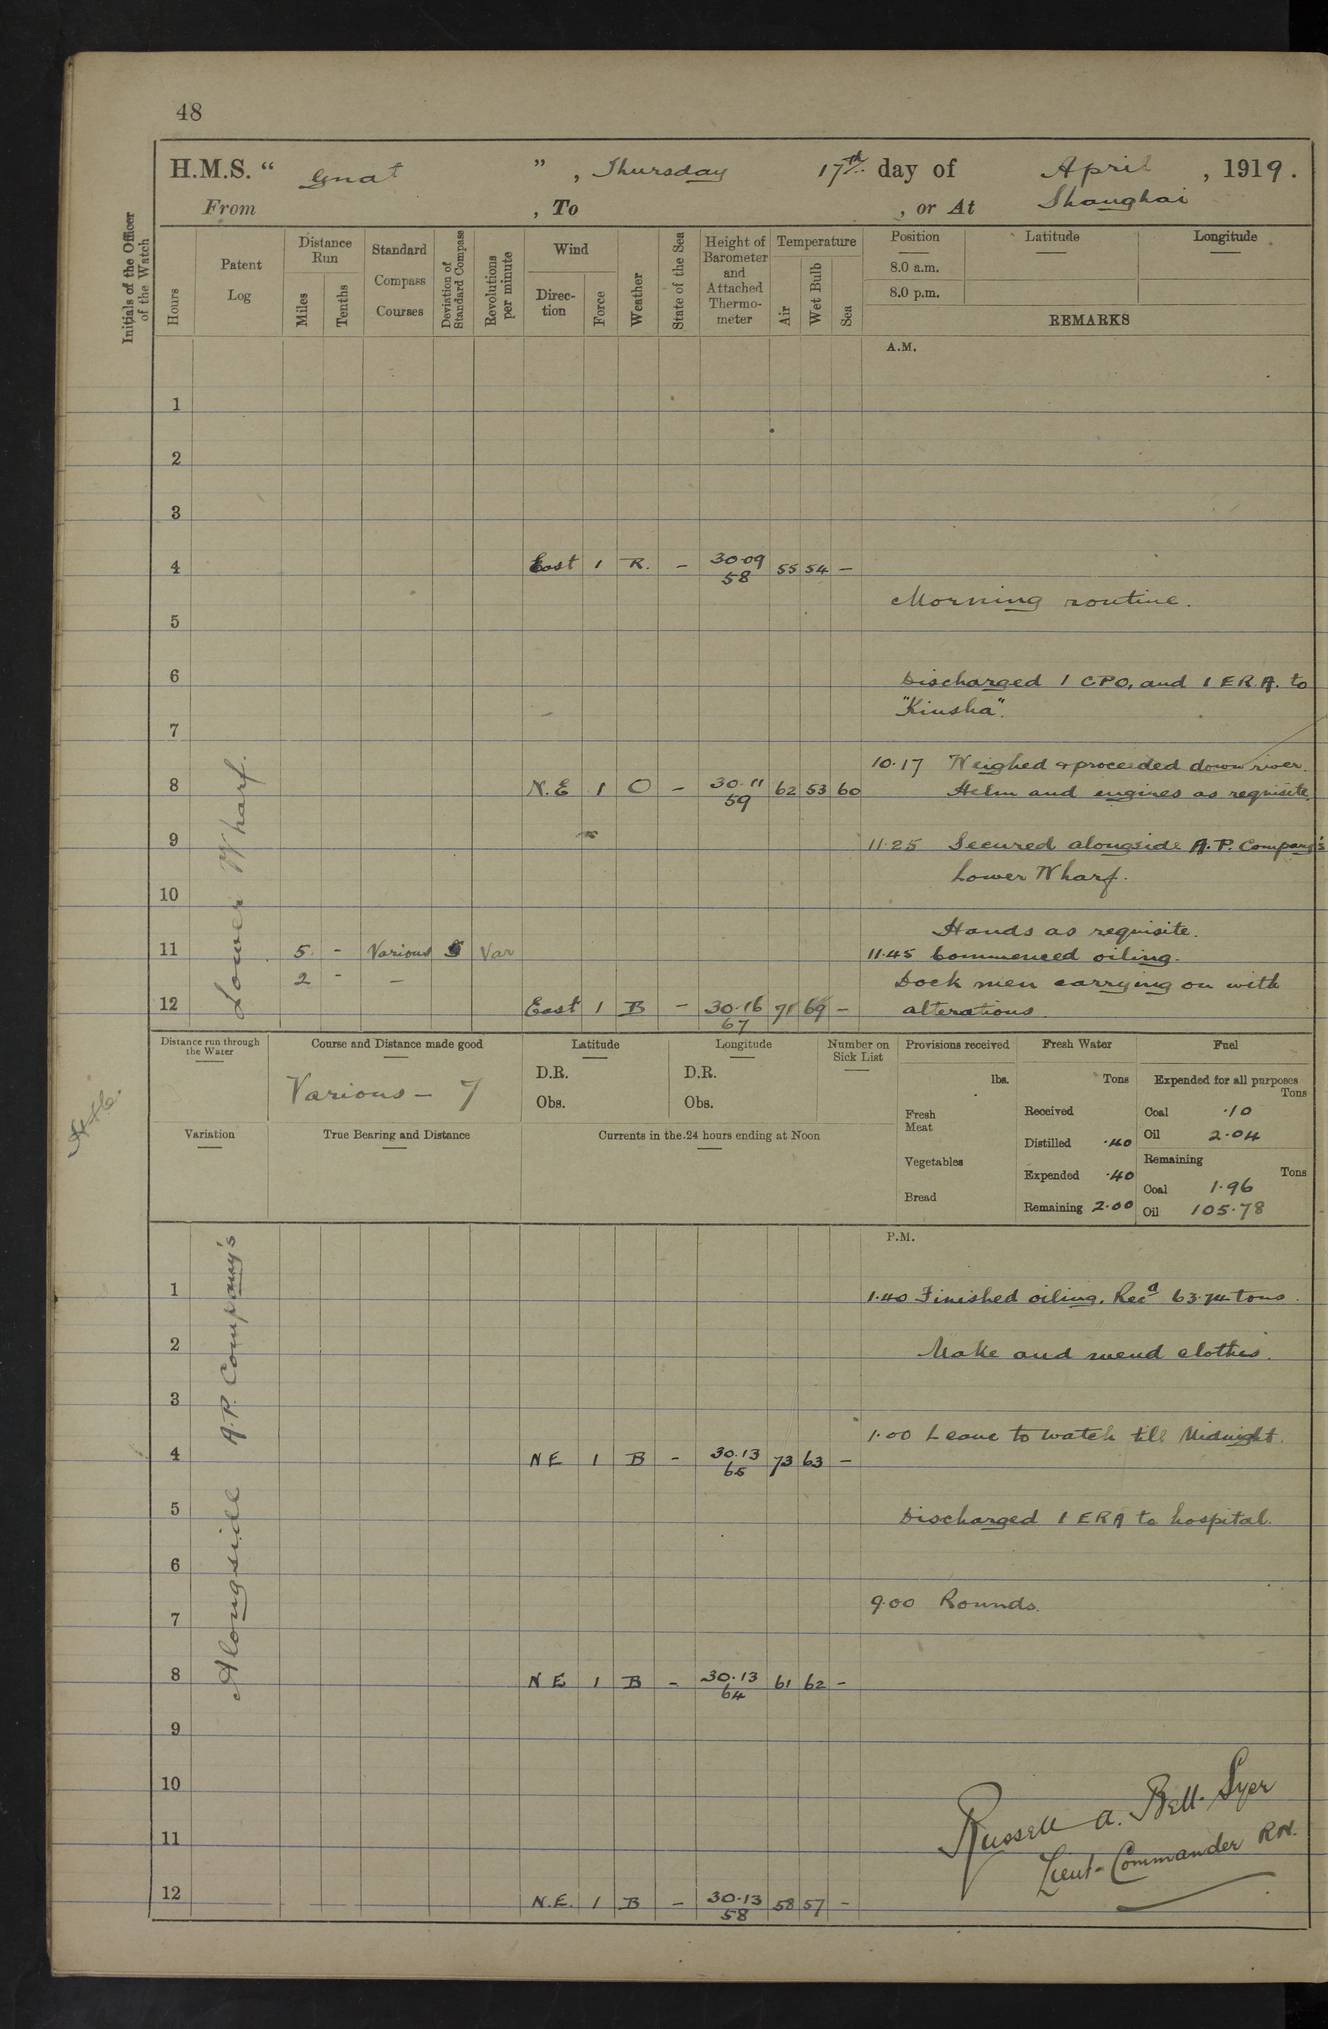 48
H.M.S. “ Gnat ”, Thursday 17th day of April, 1919.
From , To , or At Shanghai
Initials of the Officer of the Watch
Hours
Patent Log
Distance Run
Miles
Tenths
Standard Compass Courses
Deviation of Standard Compass
Revolutions per minute
Wind
Direction
Force
Weather
State of the Sea
Height of Barometer and Attached Thermometer
Temperature
Air
Wet Bulb
Sea
Position Latitude Longitude
8.0 a.m.
8.0 p.m.
REMARKS
A.M.
1
2
3
4 East 1 R. - 30.09 55 54 -
58
Morning routine.
5
6 Discharged 1 CPO, and 1 E.R.A. to
"Kinsha".
7
10.17 Weighed & proceeded down river.
8 N.E 1 O - 30.11 62 53 60 Helm and engines as requisite.
59
9 11.25 Secured alongside A.P. Company's
Lower Wharf.
10
Hands as requisite.
11 5 - Various Var 11.45 Commenced oiling.
2 - - Dock men carrying on with
12 East 1 B - 30.16 71 69 - alterations.
67
Lower Wharf.
Distance run through the Water
Course and Distance made good
Various - 7
Latitude
D.R.
Obs.
Longitude
D.R.
Obs.
Number on Sick List
Provisions received
lbs.
Fresh Meat
Vegetables
Bread
Fresh Water
Tons
Received
Distilled .40
Expended .40
Remaining 2.00
Fuel
Expended for all purposes
Tons
Coal .10
Oil 2.04
Remaining
Tons
Coal 1.96
Oil 105.78
Variation
True Bearing and Distance
Currents in the 24 hours ending at Noon
P.M.
1 1.40 Finished oiling. Recd 63.74 tons.
2 Make and mend clothes.
3
1.00 Leave to watch till Midnight.
4 NE 1 B - 30.13 73 63 -
65
5 Discharged 1 ERA to hospital.
6
9.00 Rounds.
7
8 NE 1 B - 30.13 61 62 -
64
9
10
11
12 N.E. 1 B - 30.13 58 57 -
58
Alongside A.P. Company's
Russell A. Bell-Syer
Lieut-Commander RN.